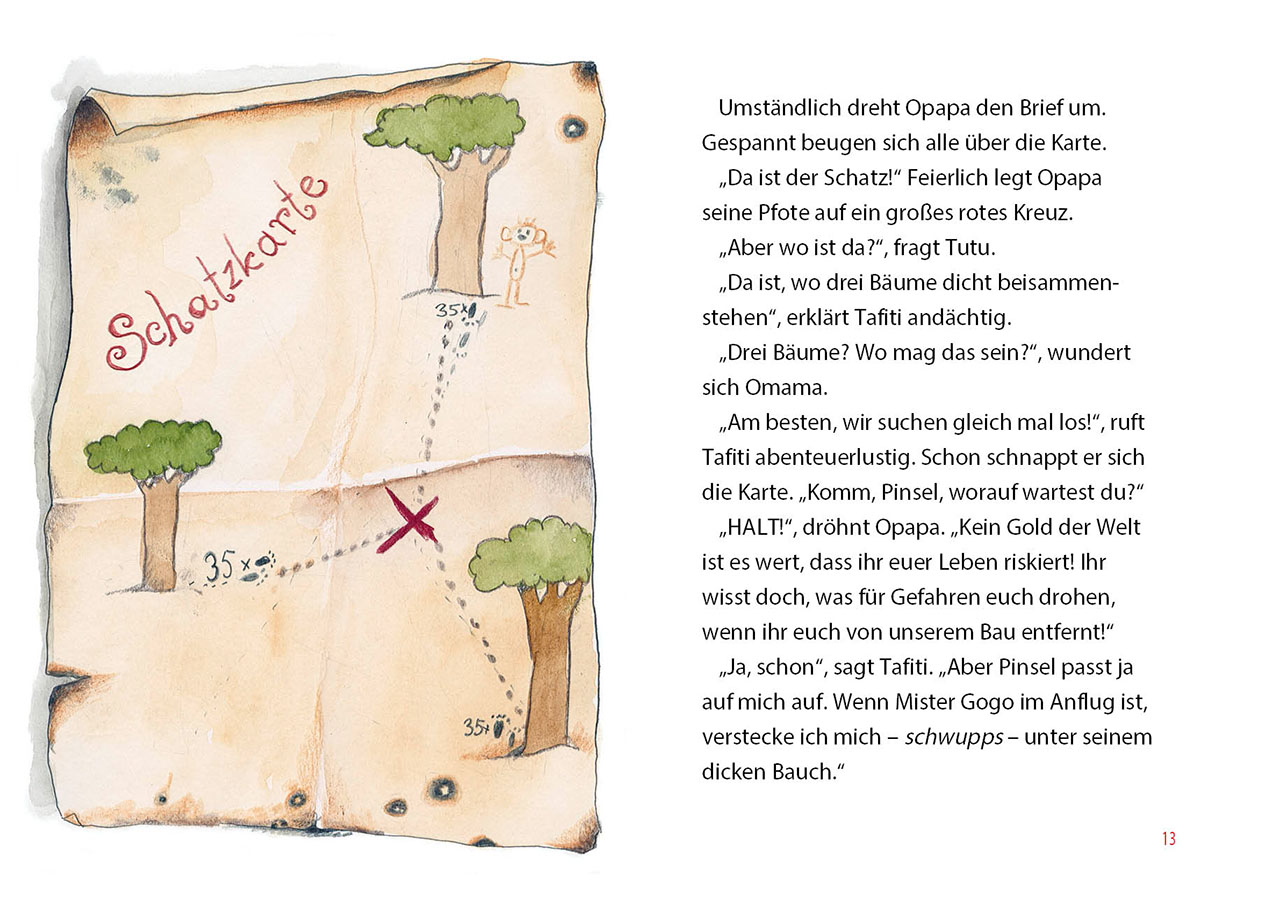 Schatzkarte
35x
35x
35x
Umständlich dreht Opapa den Brief um.
Gespannt beugen sich alle über die Karte.
„Da ist der Schatz!“ Feierlich legt Opapa
seine Pfote auf ein großes rotes Kreuz.
„Aber wo ist da?“, fragt Tutu.
„Da ist, wo drei Bäume dicht beisammen-
stehen“, erklärt Tafiti andächtig.
„Drei Bäume? Wo mag das sein?“, wundert
sich Omama.
„Am besten, wir suchen gleich mal los!“, ruft
Tafiti abenteuerlustig. Schon schnappt er sich
die Karte. „Komm, Pinsel, worauf wartest du?“
„HALT!“, dröhnt Opapa. „Kein Gold der Welt
ist es wert, dass ihr euer Leben riskiert! Ihr
wisst doch, was für Gefahren euch drohen,
wenn ihr euch von unserem Bau entfernt!“
„Ja, schon“, sagt Tafiti. „Aber Pinsel passt ja
auf mich auf. Wenn Mister Gogo im Anflug ist,
verstecke ich mich – schwupps – unter seinem
dicken Bauch.“
13